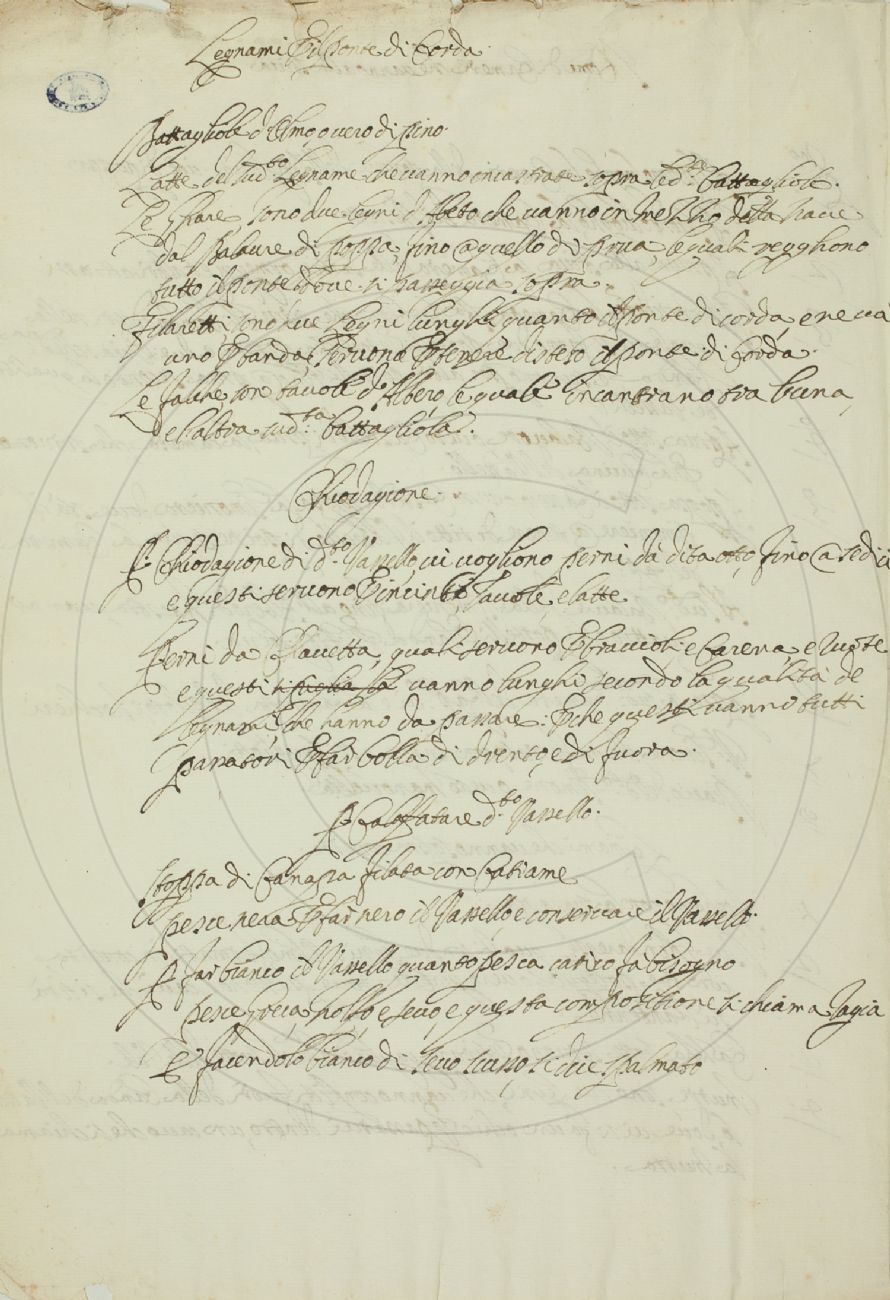 Legnami P il Ponte di Corda.
Battagliole d'Olmo, o vero di pino.
Latte del sud.to Legname che vanno incastrate sopra le d.te battagliole.
Le sono due Legni d'Abeto che vanno in mezzo della Nave
dal di poppa, fino a quello di prua, le quali regghono
tutto il ponte dove si passeggia sopra.
Filaretti sono due Legni lunghi quanto il ponte di corda, e ne va
uno P banda, servono P tenere disteso il ponte di Corda.
Le son tavole d'Albero, le quali incantrano tra l'una,
e l'altra sud.ta battagliola.
Chiodagione.
P Chiodagione di d.to Vassello, vi vogliono perni da dita otto, fino a sedici
e questi servono P incinte, Tavole, e latte.
Perni da Chiavetta, quali servono P braccioli e Carena, e
e questi vanno lunghi secondo la qualità de
Legnami, che hanno da passare. P che questi vanno tutti
passatori P far bolla di drento, e di fuora.
P Calafatare d.to Vassello.
Stoppa di Canapa filata con Catrame
pesce nera P far nero il Vassello, e conservare il Vassello.
P far bianco il Vassello quanto pesca carico fa bisogno
pesce Grecia, e sevo, e questa compositione si chiama
P facendolo bianco di sevo si dice spalmato